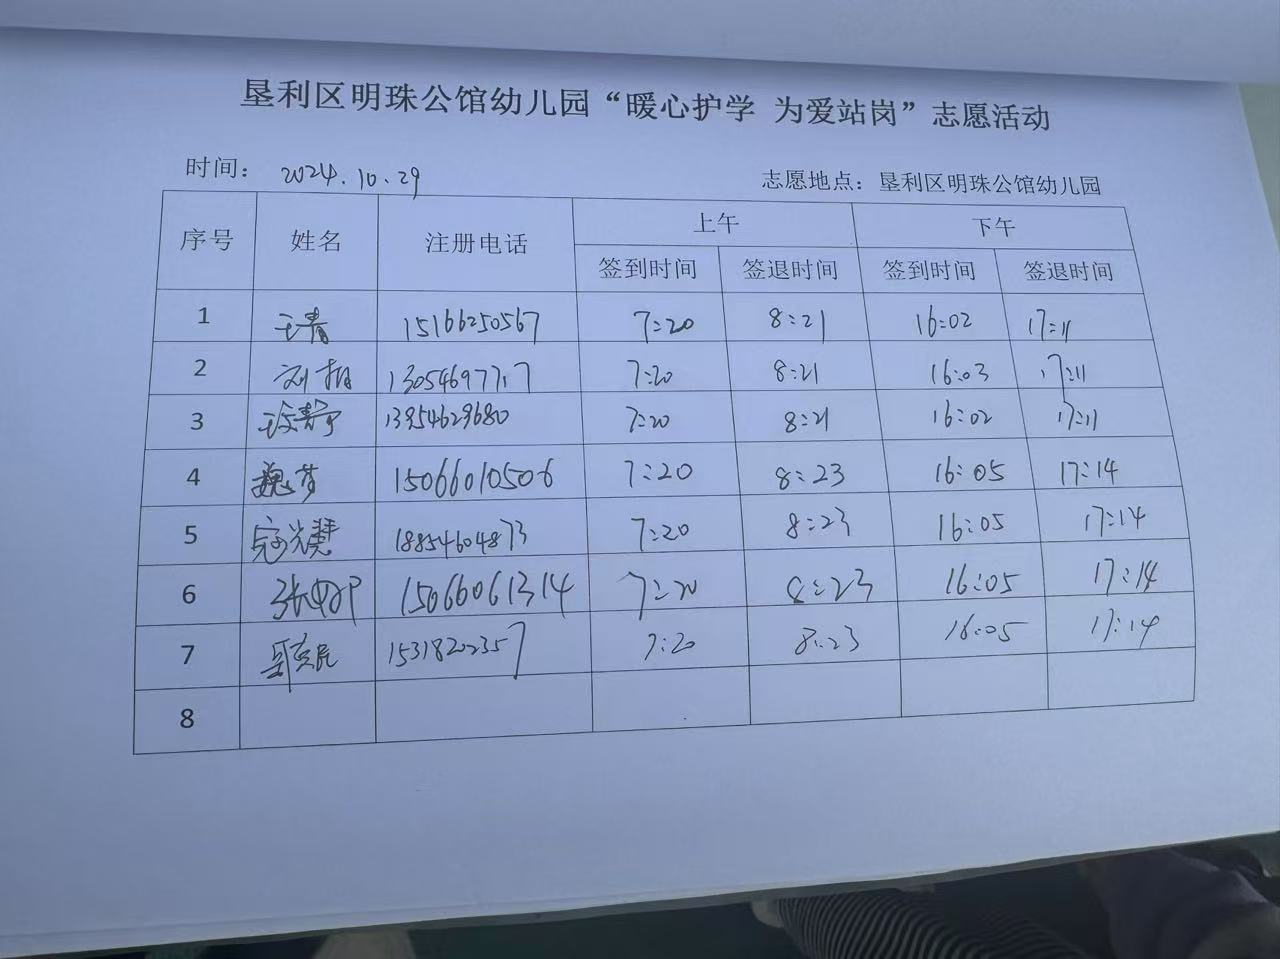 垦利区明珠公馆幼儿园“暖心护学 为爱站岗”志愿活动
时间： 2024.10.29 志愿地点：垦利区明珠公馆幼儿园
序号 姓名 注册电话 上午 下午
签到时间 签退时间 签到时间 签退时间
1 王青 15166250567 7:20 8:21 16:02 17:11
2 刘 7:20 8:21 16:03 17:11
3 7:20 8:21 16:02 17:11
4 魏梦 15066010506 7:20 8:23 16:05 17:14
5 18854604873 7:20 8:23 16:05 17:14
6 张 15066061314 7:20 8:23 16:05 17:14
7 15318202357 7:20 8:23 16:05 17:14
8